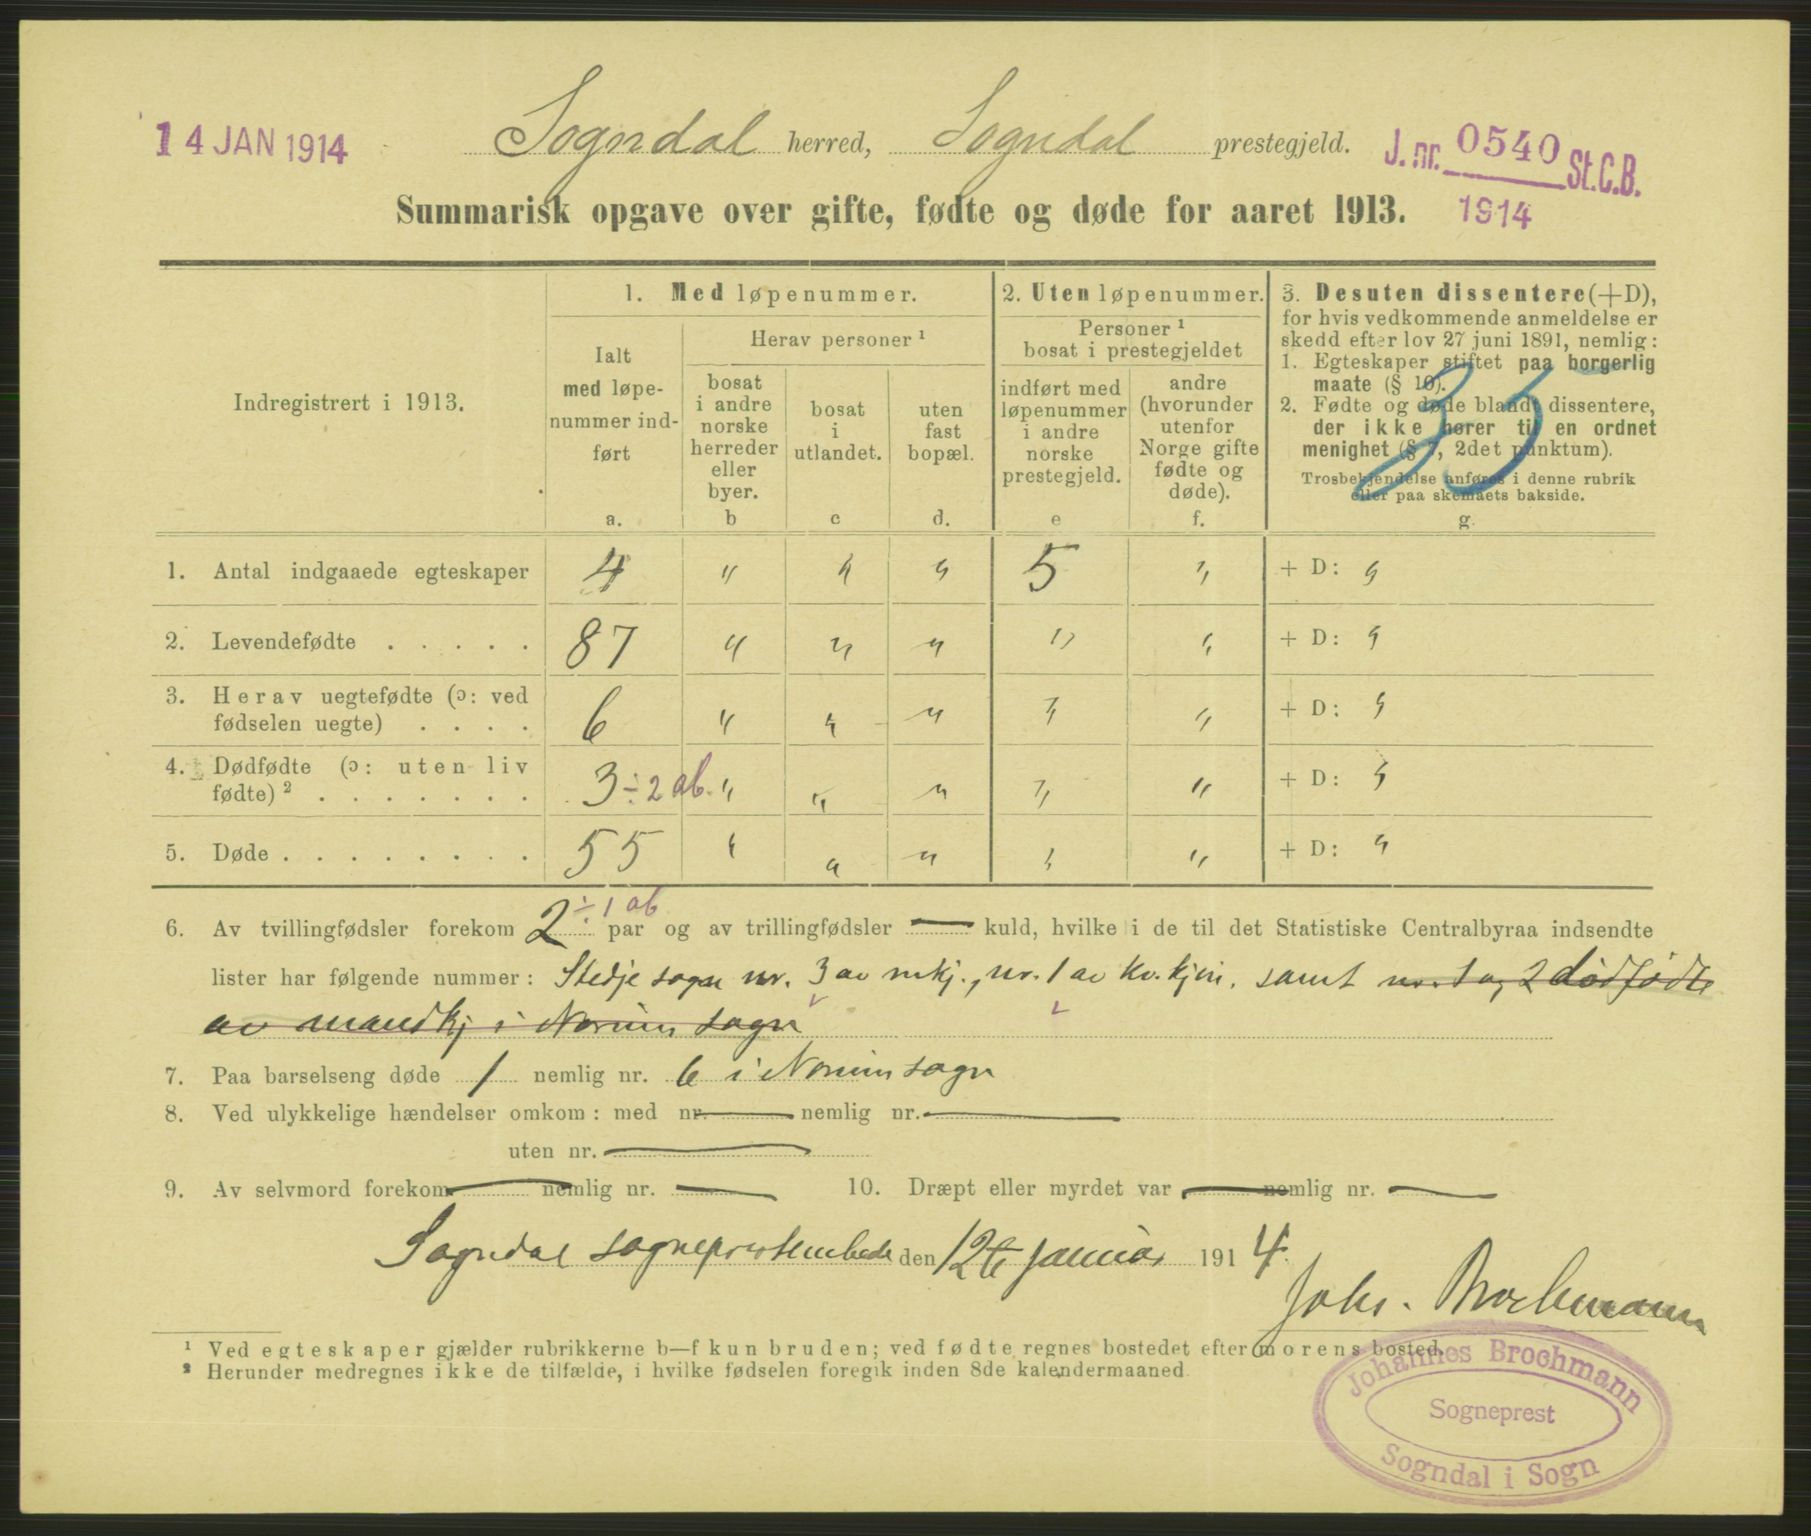 14 JAN 1914
Sogndal herred, Sogndal prestegjeld.
J. nr. 0540 St.C.B.
1914
Summarisk opgave over gifte, fødte og døde for aaret 1913.
Indregistrert i 1913.
1. Med løpenummer.
Ialt
med løpe-
nummer ind-
ført
a.
Herav personer ¹
bosat
i andre
norske
herreder
eller
byer.
b
bosat
i
utlandet.
c
uten
fast
bopæl.
d.
2. Uten løpenummer.
Personer ¹
bosat i prestegjeldet
indført med
løpenummer
i andre
norske
prestegjeld.
e
andre
(hvorunder
utenfor
Norge gifte
fødte og
døde).
f.
3. Desuten dissentere (+D),
for hvis vedkommende anmeldelse er
skedd efter lov 27 juni 1891, nemlig:
1. Egteskaper stiftet paa borgerlig
maate (§ 10).
2. Fødte og døde blandt dissentere,
der ikke hører til en ordnet
menighet (§ 7, 2det punktum).
Trosbekjendelse anføres i denne rubrik
eller paa skemaets bakside.
g.
35
1. Antal indgaaede egteskaper 4 " " " 5 " + D: "
2. Levendefødte . . . . . 87 " " " " " + D: "
3. Herav uegtefødte (ɔ: ved
fødselen uegte) . . . . 6 " " " " " + D: "
4. Dødfødte (ɔ: uten liv
fødte) ² . . . . . . . 3 ÷ 2 ab. " " " " " + D: "
5. Døde . . . . . . . . 55 " " " " " + D: "
6. Av tvillingfødsler forekom 2 ÷ 1 ab par og av trillingfødsler — kuld, hvilke i de til det Statistiske Centralbyraa indsendte
lister har følgende nummer: Stedje sogn nr. 3 av mkj., nr. 1 av kv.kjøn. samt nr. 1 og 2 dødfødte
av mandkj i Norum sogn
7. Paa barselseng døde 1 nemlig nr. 6 i Norum sogn
8. Ved ulykkelige hændelser omkom: med nr. — nemlig nr. —
uten nr. —
9. Av selvmord forekom — nemlig nr. — 10. Dræpt eller myrdet var — nemlig nr. —
Sogndal sogneprestembede den 12te januar 1914.
Johs. Brochmann
¹ Ved egteskaper gjælder rubrikkerne b—f kun bruden; ved fødte regnes bostedet efter morens bosted.
² Herunder medregnes ikke de tilfælde, i hvilke fødselen foregik inden 8de kalendermaaned.
Johannes Brochmann
Sogneprest
Sogndal i Sogn